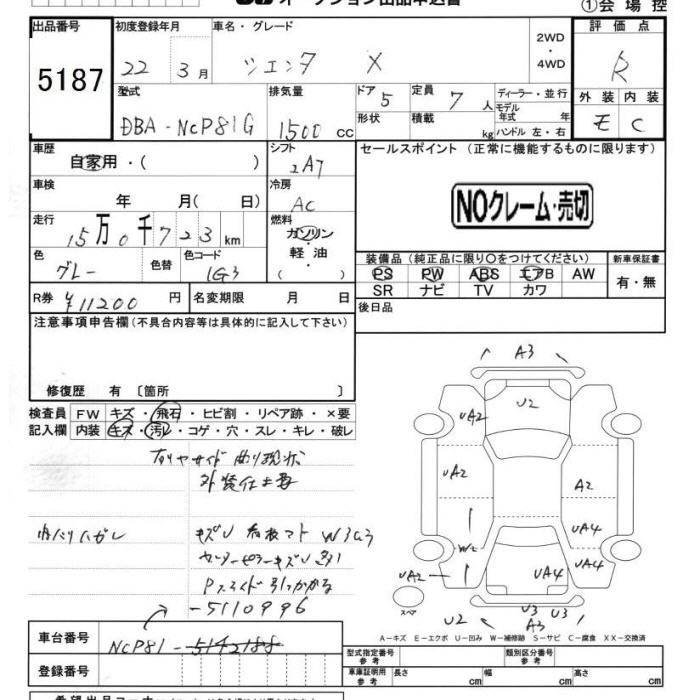 オークション出品申込書
①会場控
出品番号 初度登録年月 車名・グレード 評価点
5187 22 3月 シエンタ X 2WD・4WD R
型式 排気量 ドア 定員 ディーラー・並行 外装 内装
DBA-NCP81G 1500cc 5 7人 モデル年式 年 E C
形状 積載 kg ハンドル 左・右
車歴 シフト セールスポイント (正常に機能するものに限ります)
自家用・( ) 2A7
車検 冷房
年 月( 日) AC
NOクレーム・売切
走行 燃料
15万0千723km ガソリン・軽油 ( )
色 色替 色コード 装備品(純正品に限り○をつけてください) 新車保証書
グレー 1G3 PS PW ABS エアB AW 有・無
SR ナビ TV カワ
R券 ¥11200円 名変期限 月 日 後日品
注意事項申告欄(不具合内容等は具体的に記入して下さい)
修復歴 有 〔箇所 〕
検査員 FW キズ・飛石・ヒビ割・リペア跡・×要
記入欄 内装 キズ・汚レ・コゲ・穴・スレ・キレ・破レ
外装仕上要
内ハリハガレ
キズU 看板アト W3G3
センターピラーキズU
Pスライド引っかかる
-5110996
A3
U2
UA2
UA2 A2
UA4
W2
UA2 UA4 UA4
U2 U3 U3
スペア
A-キズ E-エクボ U-凹み W-補修跡 S-サビ C-腐食 XX-交換済
車台番号 NCP81-5142188
型式指定番号 参考 類別区分番号 参考
登録番号
車庫証明用 参考 長さ cm 幅 cm 高さ cm